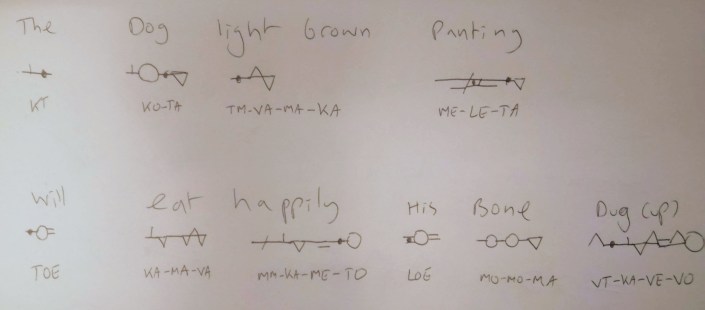 The Dog light brown Panting
KT KO-TA TM-VA-MA-KA ME-LE-TA
Will eat happily His Bone Dug (up)
TOE KA-MA-VA MA-KA-ME-TO LOE MO-MO-MA VT-KA-VE-VO